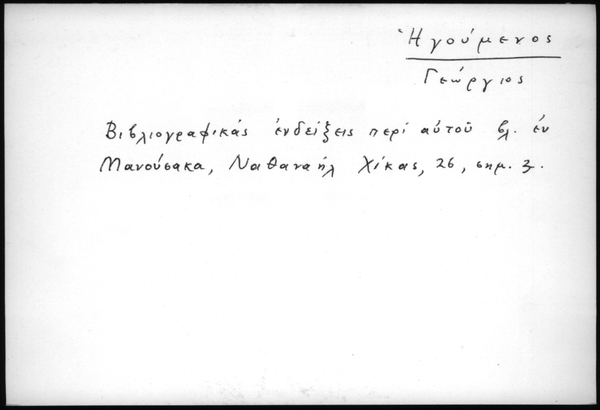 Ἡγούμενος
Γεώργιος
Βιβλιογραφικάς ἐνδείξεις περί αὐτοῦ βλ. ἐν
Μανούσακα, Ναθαναήλ Χίκας, 26, σημ. 3.